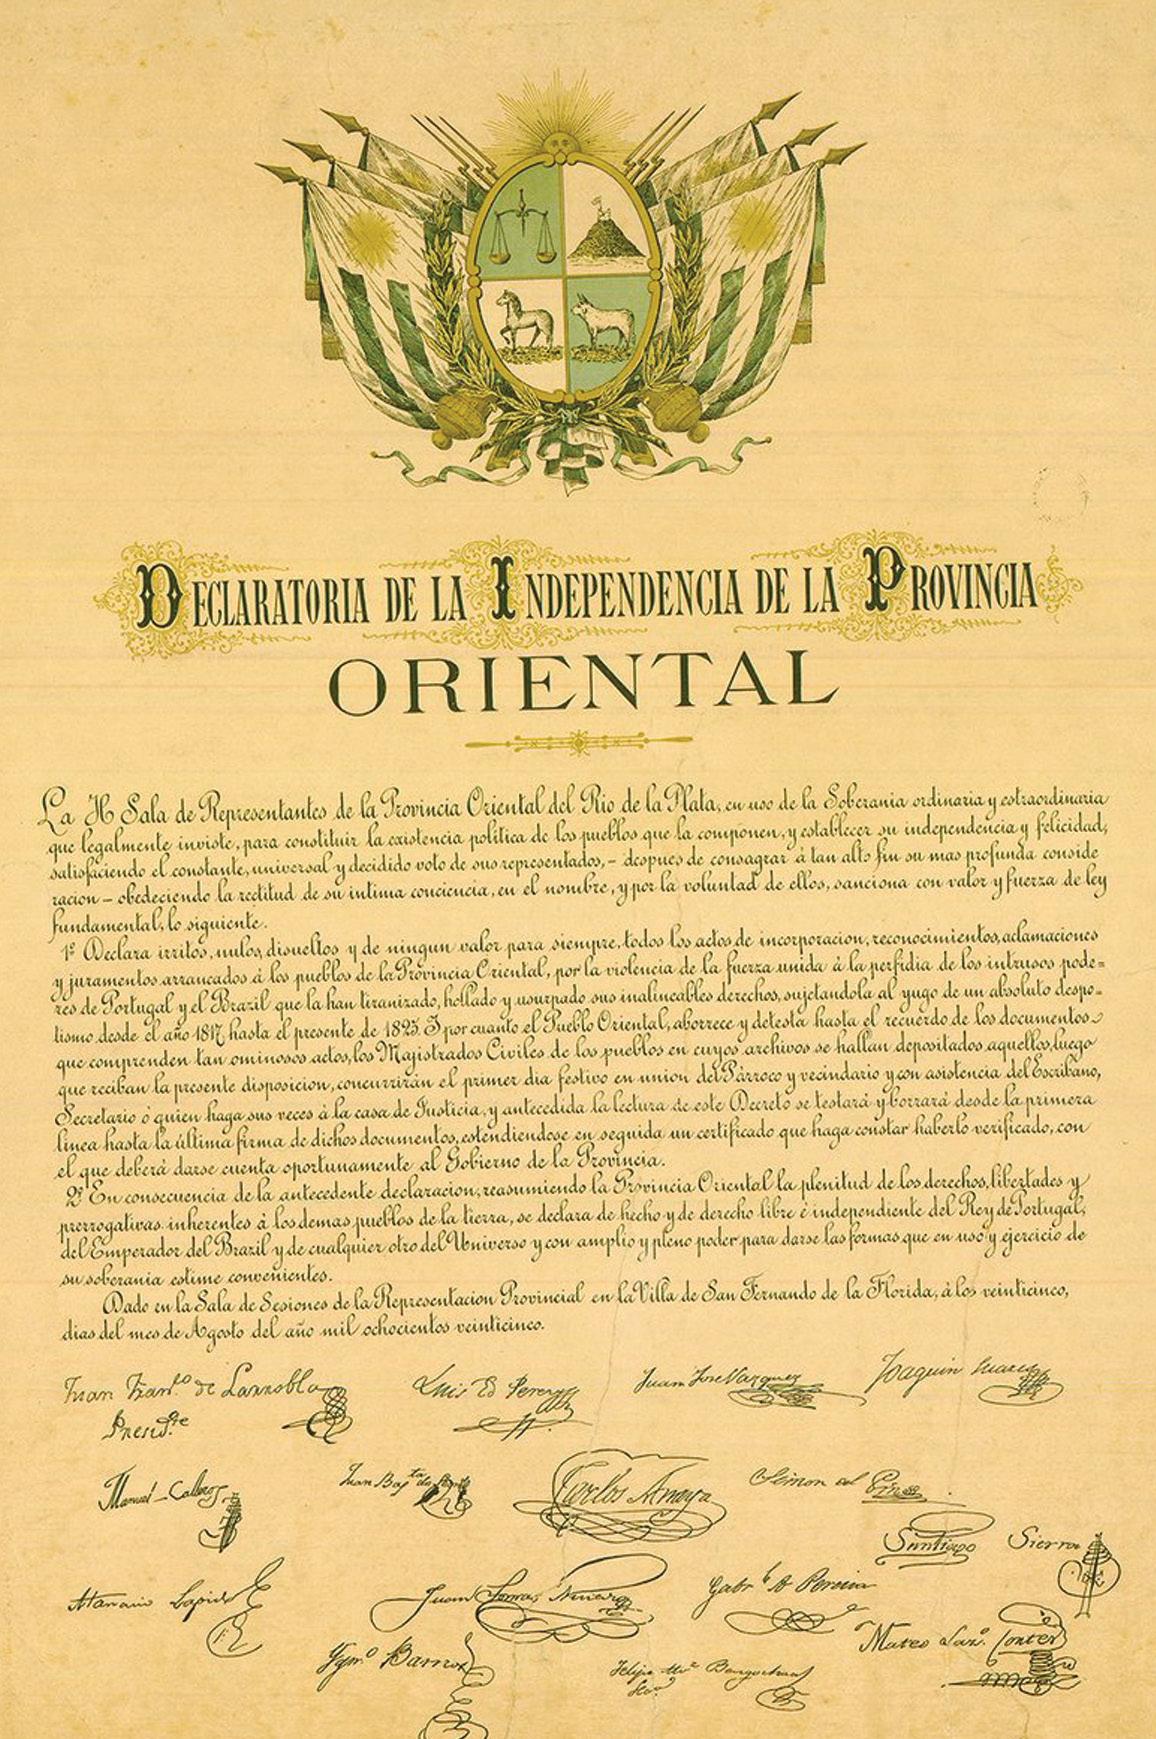 DECLARATORIA DE LA INDEPENDENCIA DE LA PROVINCIA
ORIENTAL
La H Sala de Representantes de la Provincia Oriental del Rio de la Plata, en uso de la Soberania ordinaria y estraordinaria
que legalmente inviste, para constituir la existencia política de los pueblos que la componen, y establecer su independencia y felicidad,
satisfaciendo el constante, universal y decidido voto de sus representados, – despues de consagrar à tan alto fin su mas profunda conside
racion – obedeciendo la rectitud de su intima conciencia, en el nombre, y por la voluntad de ellos, sanciona con valor y fuerza de ley
fundamental, lo siguiente.
1º Declara irritos, nulos, disueltos y de ningun valor para siempre, todos los actos de incorporacion, reconocimientos, aclamaciones
y juramentos arrancados à los pueblos de la Provincia Oriental, por la violencia de la fuerza unida à la perfidia de los intrusos pode=
res de Portugal y el Brazil que la han tiranizado, hollado y usurpado sus inalineables derechos, sujetandola al yugo de un absoluto despo-
tismo desde el año 1817 hasta el presente de 1825. I por cuanto el Pueblo Oriental, aborrece y detesta hasta el recuerdo de los documentos
que comprenden tan ominosos actos, los Magistrados Civiles de los pueblos en cuyos archivos se hallan depositados aquellos, luego
que reciban la presente disposicion, concurrirán el primer dia festivo en union del Pàrroco y vecindario y con asistencia del Escribano,
Secretario ó quien haga sus veces à la casa de Justicia, y antecedida la lectura de este Decreto se testará y borrará desde la primera
linea hasta la última firma de dichos documentos, estendiendose en seguida un certificado que haga constar haberlo verificado, con
el que deberá darse cuenta oportunamente al Gobierno de la Provincia.
2º En consecuencia de la antecedente declaracion, reasumiendo la Provincia Oriental la plenitud de los derechos, libertades y
prerrogativas inherentes à los demas pueblos de la tierra, se declara de hecho y de derecho libre é independiente del Rey de Portugal,
del Emperador del Brazil y de cualquier otro del Universo y con amplio y pleno poder para darse las formas que en uso y ejercicio de
su soberania estime convenientes.
Dado en la Sala de Sesiones de la Representacion Provincial en la Villa de San Fernando de la Florida, à los veinticinco,
dias del mes de Agosto del año mil ochocientos veinticinco.
Juan Franco de Larrobla Luis Ed Perez Juan José Vazquez Joaquin Suarez
Presidte
Manuel Calleros Juan Bajta de Carlos Anaya Simon del Pino
Santiago Sierra
Atanacio Lapido Juan Tomas Nuñez Gabrl A Pereira
Mateo Lazo Cortez
Ygno Barrios